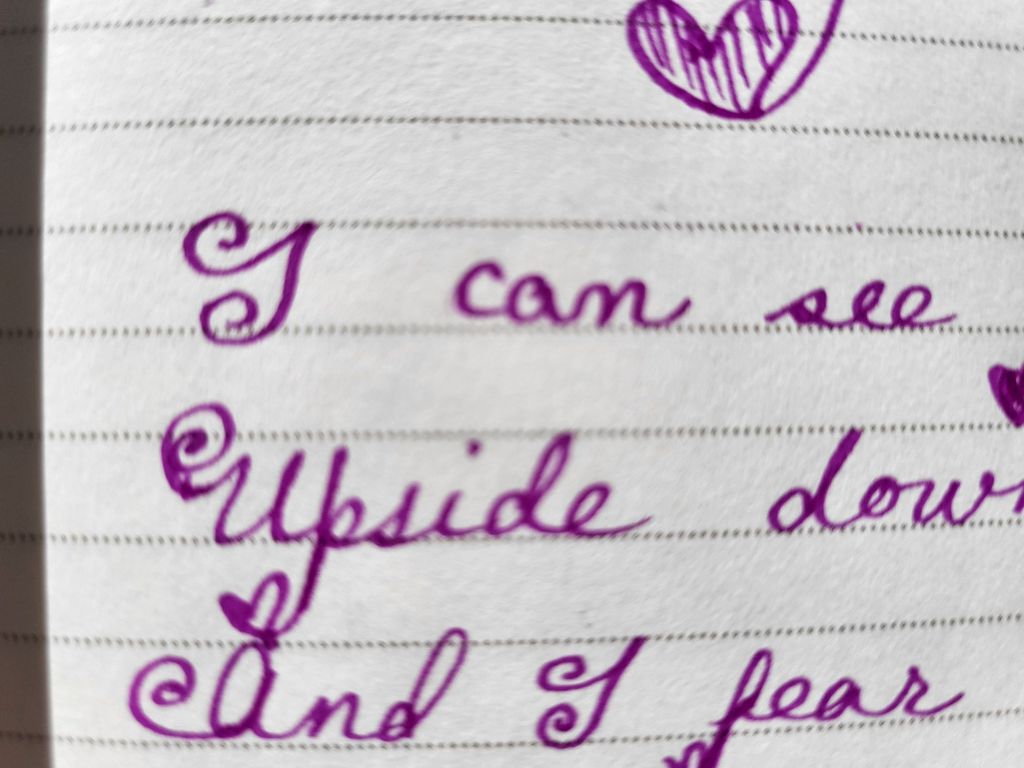 I can see
Upside down
And I fear